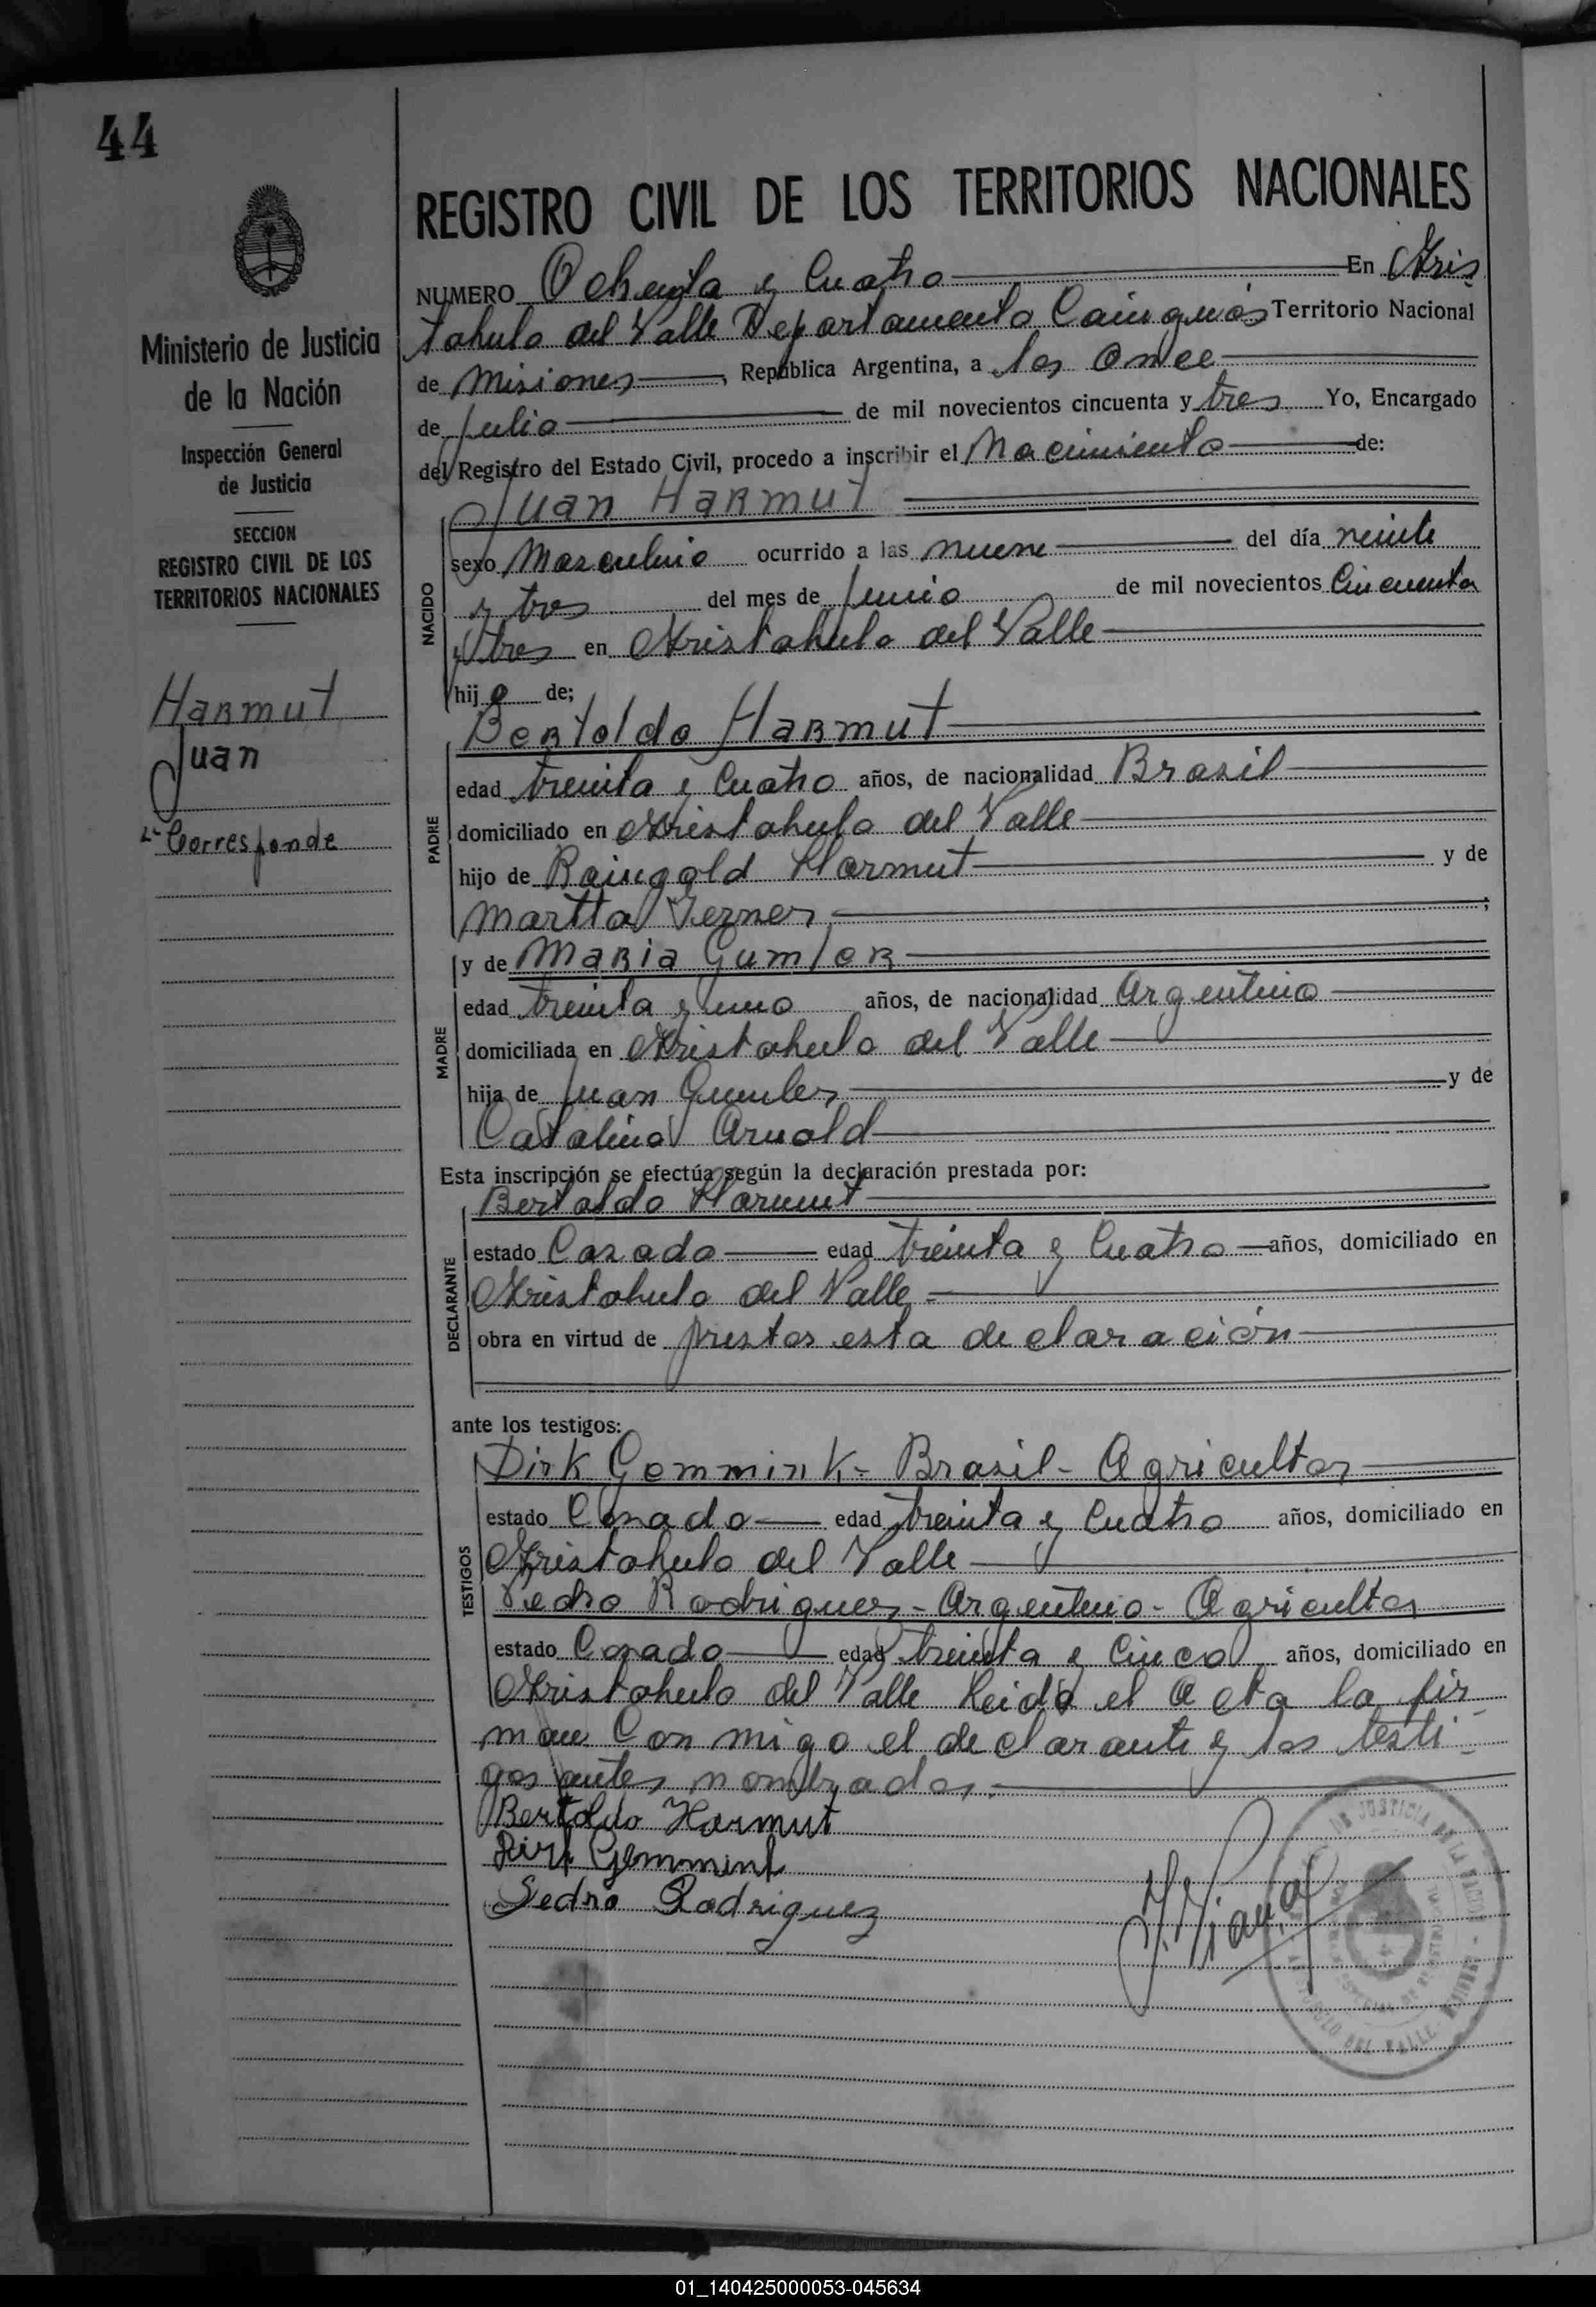 44
REGISTRO CIVIL DE LOS TERRITORIOS NACIONALES
Ministerio de Justicia
de la Nación
Inspección General
de Justicia
SECCION
REGISTRO CIVIL DE LOS
TERRITORIOS NACIONALES
Harmut
Juan
Corresponde
NUMERO Ochenta y Cuatro En Aris
tobulo del Valle Departamento Cainguás Territorio Nacional
de Misiones, República Argentina, a los once
de julio de mil novecientos cincuenta y tres Yo, Encargado
del Registro del Estado Civil, procedo a inscribir el Nacimiento de:
Juan Harmut
NACIDO
sexo Masculino ocurrido a las nueve del día veinte
y tres del mes de junio de mil novecientos Cincuenta
y tres en Aristobulo del Valle
hijo de;
Bertoldo Harmut
PADRE
edad treinta y Cuatro años, de nacionalidad Brasil
domiciliado en Aristobulo del Valle
hijo de Raingold Harmut y de
Martta Verner;
y de Maria Gumler
MADRE
edad treinta y uno años, de nacionalidad Argentina
domiciliada en Aristobulo del Valle
hija de Juan Gumler y de
Catalina Arnold
Esta inscripción se efectúa según la declaración prestada por:
Bertoldo Harmut
DECLARANTE
estado Casado edad treinta y Cuatro años, domiciliado en
Aristobulo del Valle
obra en virtud de prestar esta declaración
ante los testigos:
TESTIGOS
Dirk Gemmink - Brasil - Agricultor
estado Casado edad treinta y Cuatro años, domiciliado en
Aristobulo del Valle
Pedro Rodriguez - Argentino - Agricultor
estado Casado edad treinta y Cinco años, domiciliado en
Aristobulo del Valle Leida el Acta la fir
man Con migo el declarante y los testi
gos antes nombrados.
Bertoldo Harmut
Dirk Gemmink
Pedro Rodriguez
01_140425000053-045634